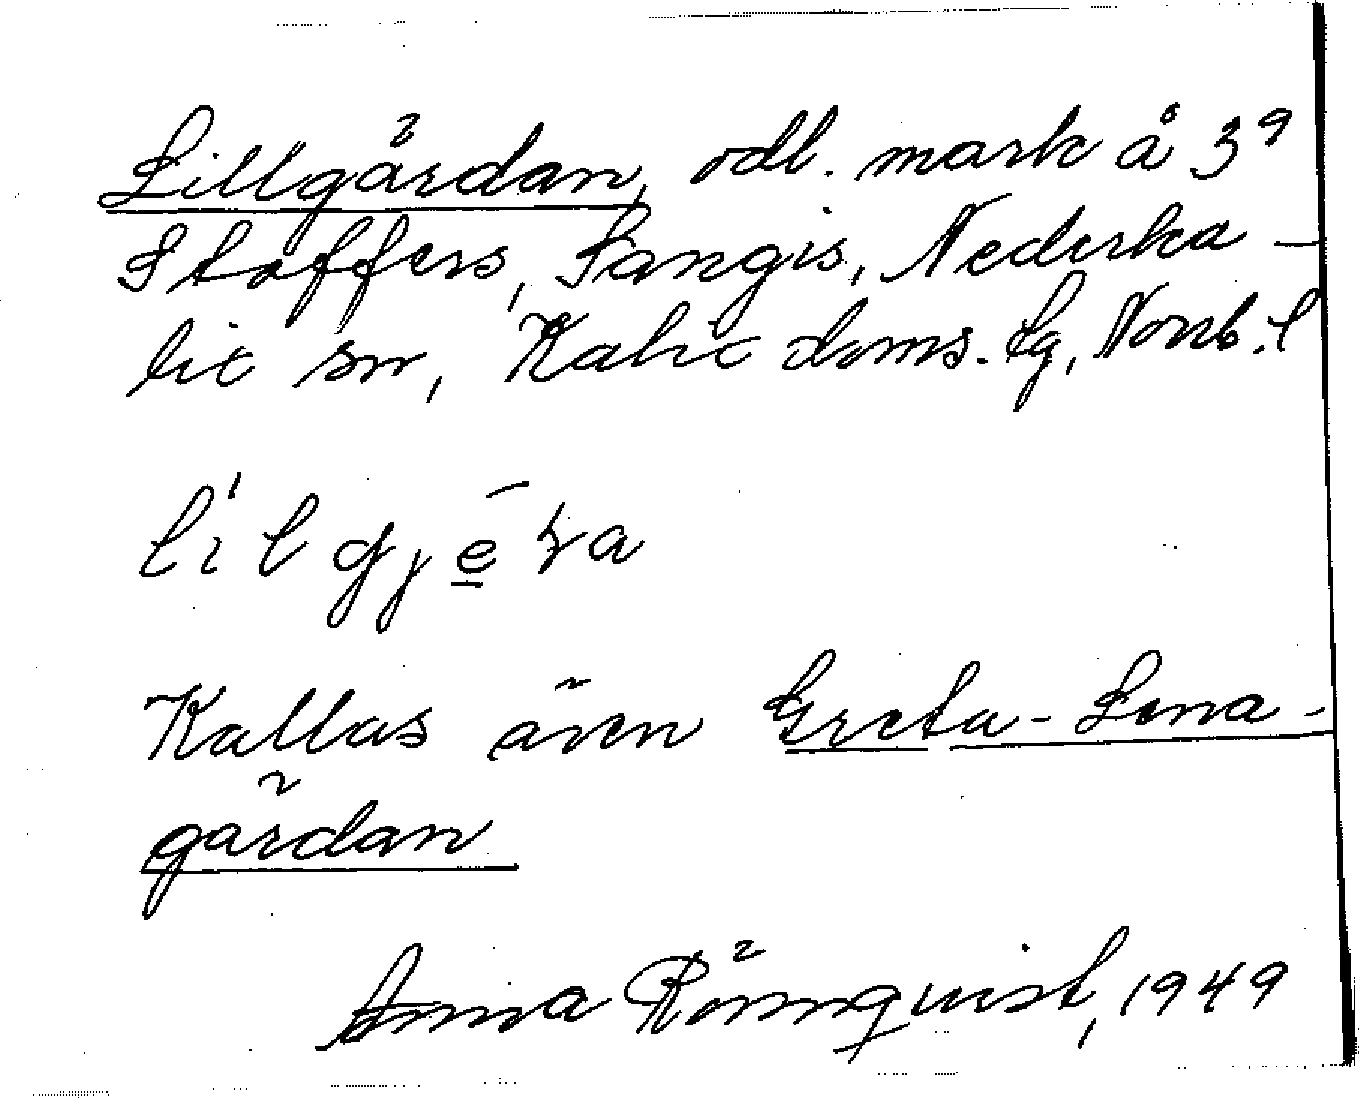 Lillgärdan, odl. mark å 3⁹
Stoffers, Sangis, Nederka-
lix sn, Kalix doms. lg, Norrb. l
Kallas även Greta-Lena-
gärdan
Anna Rönnquist, 1949